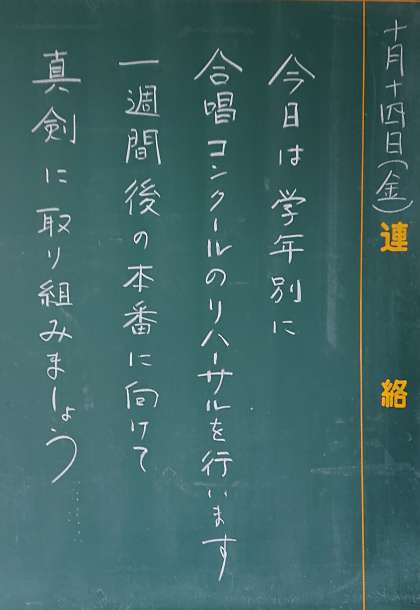 十月十四日(金)
連絡
今日は学年別に
合唱コンクールのリハーサルを行います
一週間後の本番に向けて
真剣に取り組みましょう